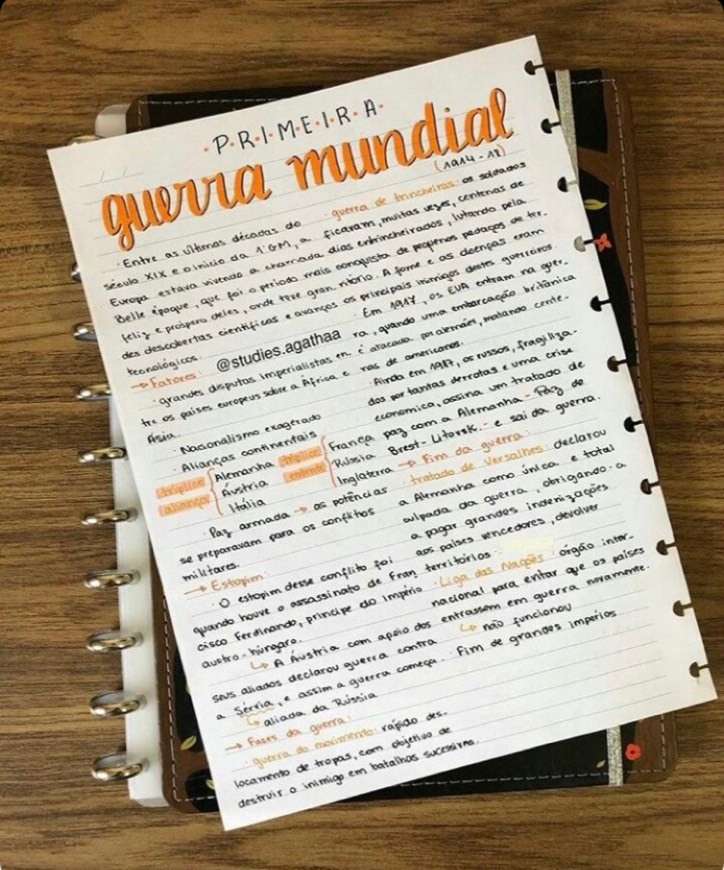 PRIMEIRA
guerra mundial
(1914-18)
· Entre as últimas décadas do
século XIX e o início da 1ªGM, a
Europa estava vivendo a chamada
Belle époque, que foi o período mais
feliz e próspero deles, onde teve gran
des descobertas científicas e avanços
tecnológicos.
@studies.agathaa
→ Fatores:
· grandes disputas imperialistas en
tre os países europeus sobre a África e
Ásia.
· Nacionalismo exagerado
· Alianças continentais
tríplice aliança { Alemanha
Áustria
Itália
tríplice entente { França
Rússia
Inglaterra
· Paz armada → as potências
se preparavam para os conflitos
militares.
→ Estopim:
· O estopim desse conflito foi
quando houve o assassinato de Fran
cisco Ferdinando, príncipe do império
austro-húngaro.
↳ A Áustria com apoio dos
seus aliados declarou guerra contra
a Sérvia, e assim a guerra começa.
↳ aliada da Rússia
→ Fases da guerra:
· guerra do movimento: rápido des-
locamento de tropas, com objetivo de
destruir o inimigo em batalhas sucessivas.
· guerra de trincheiras: os soldados
ficaram, muitas vezes, centenas de
dias entrincheirados, lutando pela
conquista de pequenos pedaços de ter-
ritório. A fome e as doenças eram
os principais inimigos destes guerreiros.
· Em 1917, os EUA entram na guer-
ra, quando uma embarcação britânica
é atacada por alemães, matando cente-
nas de americanos.
· Ainda em 1917, os russos, fragiliza-
dos por tantas derrotas e uma crise
economica, assina um tratado de
paz com a Alemanha - Paz de
Brest-Litovsk - e sai da guerra.
→ Fim da guerra:
· tratado de versalhes: declarou
a Alemanha como única e total
culpada da guerra, obrigando-a
a pagar grandes indenizações
aos países vencedores, devolver
territórios
· Liga das Nações: órgão inter-
nacional para evitar que os países
entrassem em guerra novamente.
↳ não funcionou
· Fim de grandes impérios